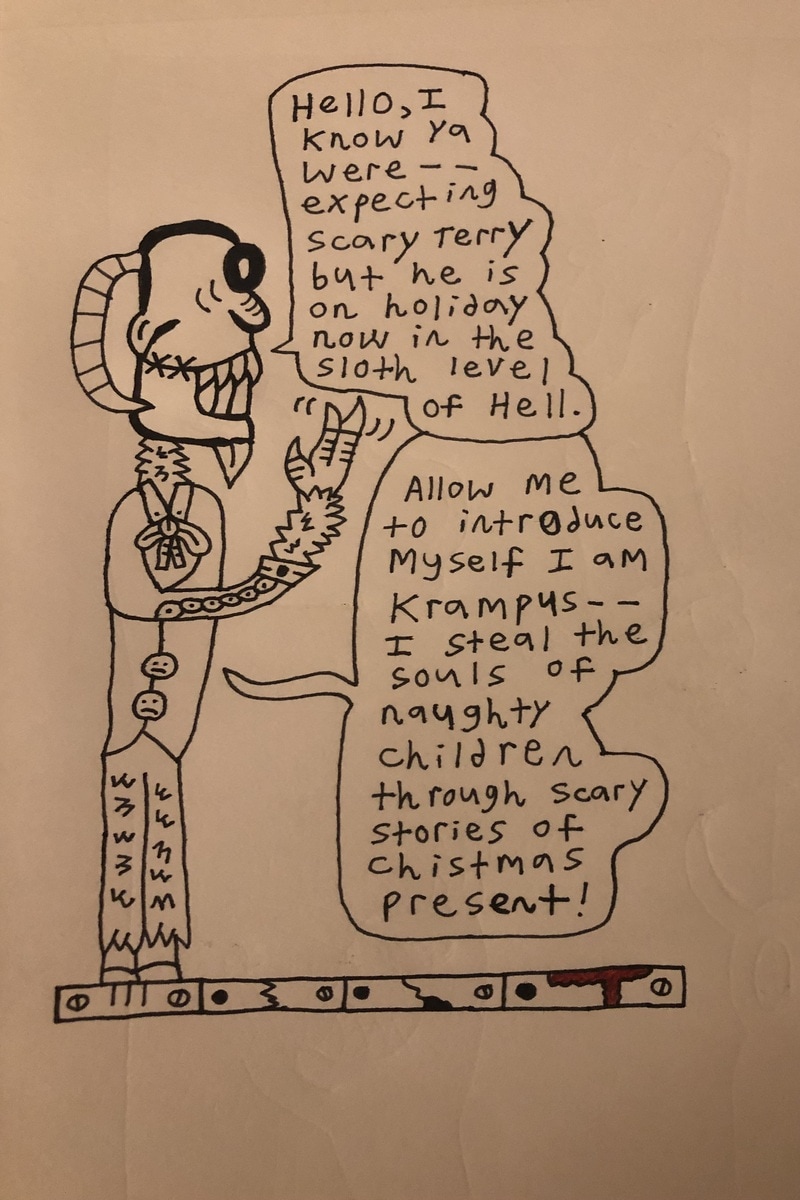 Hello, I
know ya
were--
expecting
scary Terry
but he is
on holiday
now in the
sloth level
of Hell.
Allow me
to introduce
Myself I am
Krampus--
I steal the
souls of
naughty
children
through scary
stories of
chistmas
present!